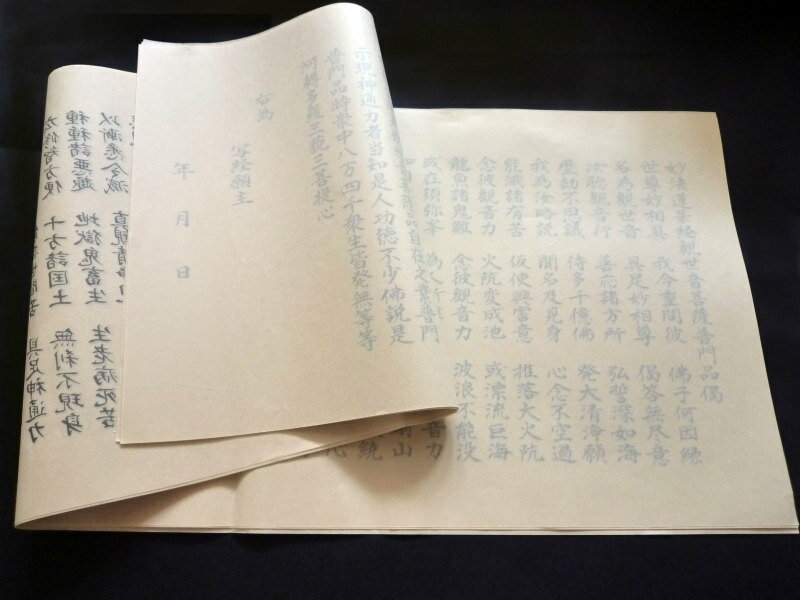 妙法蓮華経観世音菩薩普門品偈
世尊妙相具 我今重問彼 佛子何因縁
名為観世音 具足妙相尊 偈答無尽意
汝聴観音行 善応諸方所 弘誓深如海
歴劫不思議 侍多千億佛 発大清浄願
我為汝略説 聞名及見身 心念不空過
能滅諸有苦 仮使興害意 推落大火坑
念彼観音力 火坑変成池 或漂流巨海
龍魚諸鬼難 念彼観音力 波浪不能没
或在須弥峯 為人所 音力
示現神通力者当知是人功徳不少佛説是
普門品時衆中八万四千衆生皆発無等等
阿耨多羅三藐三菩提心
右為
写経願主
年 月 日
以漸悉令滅 真観清
種種諸悪趣 地獄鬼畜生 生老病死苦
広修智方便 十方諸国土 無刹不現身
具足神通力